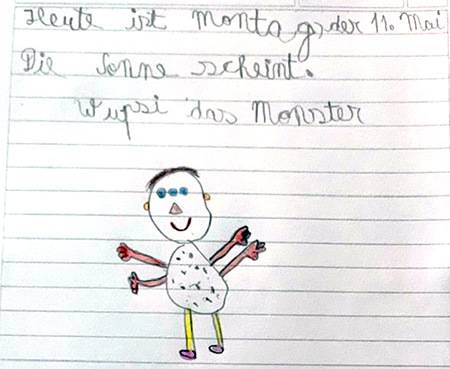 Heute ist Montag, der 11. Mai
Die Sonne scheint.
Wupsi das Monster